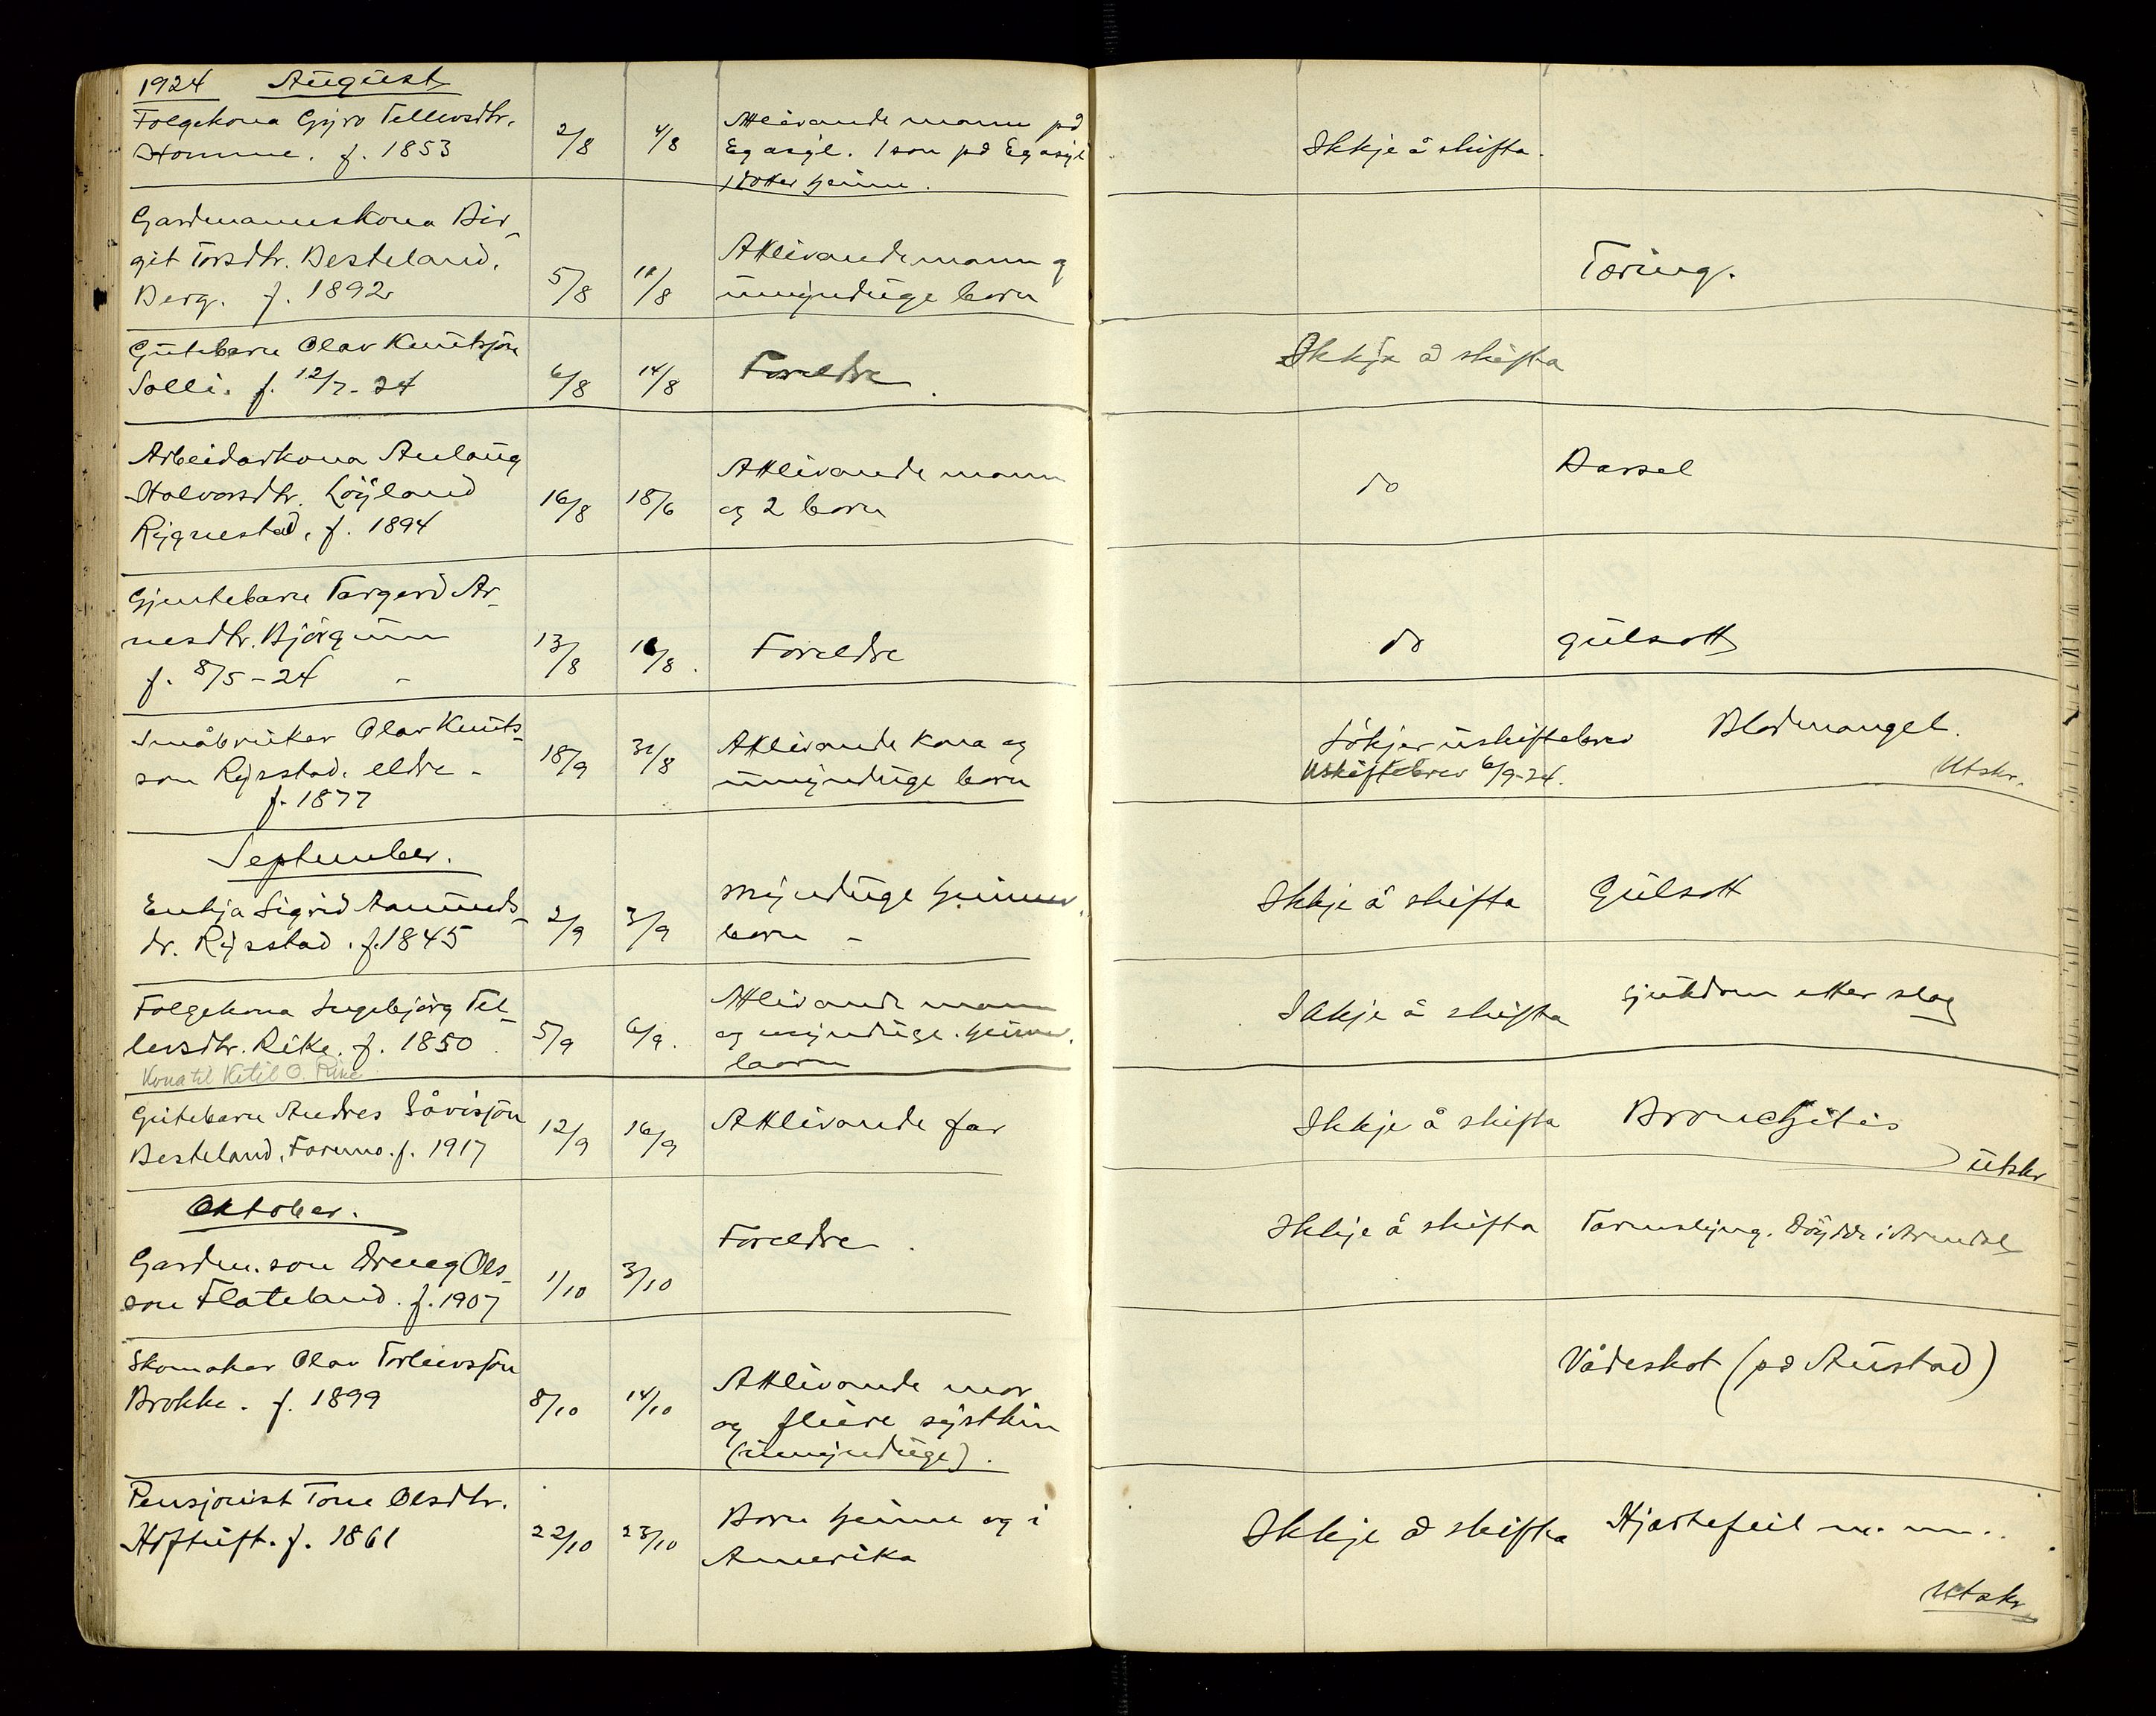 1924 August
Folgekona Gyro Tellevsdtr.
Homme. f. 1853
2/8
4/8
Attlivande mann på
Eg asyl. 1 son på Eg asyl
1 dotter heime.
Ikkje å skifta.
Gardmannskona Bir-
git Torsdtr. Besteland,
Berg. f. 1892
5/8
11/8
Attlivande mann og
umyndige born
Tæring.
Gutebarn Olav Knutsjön
Solli. f. 12/7-24
6/8
14/8
Foreldre
Ikkje å skifta
Arbeidarkona Anlaug
Halvorsdtr. Löyland
Rygnestad, f. 1894
16/8
18/6
Attlivande mann
og 2 born
do
Barsel
Gjentebarn Targerd Ar-
nesdtr. Björgum
f. 8/5-24 -
13/8
16/8.
Foreldre
do
gulsott
Småbruker Olav Knuts-
son Rysstad, eldre -
f. 1877
18/9
31/8
Attlivande kona og
umyndige born
Sökjer uskiftebrev
Uskiftebrev 6/9-24.
Blodmangel.
Utskr.
September.
Enkja Sigrid Aamunds-
dr. Rysstad. f. 1845
2/9
3/9
Myndige heimever.
born -
Ikkje å skifta
Gulsott
Folgekona Ingebjörg Tel-
levsdtr. Rike. f. 1850
Kona til Ketil O. Rike
5/9
6/9.
Attlivande mann
og myndige. heimev.
born
Ikkje å skifta
Sjukdom etter slag
Gutebarn Andres Såvisjön
Besteland, Formo. f. 1917
12/9
16/9
Attlivande far
Ikkje å skifta
Bronchitis
utskr
Oktober.
Gardm. son Dreng Ols-
son Flateland. f. 1907
1/10
3/10
Foreldre.
Ikkje å skifta
Tarmslyng. Döydde i Arendal
Skomaker Olav Torleivsjön
Brokke. f. 1899
8/10
14/10
Attlivande mor
og fleire systkin
(umyndige).
Vådeskot (på Austad)
Pensjonist Tone Olsdtr.
Hoftuft. f. 1861
22/10
23/10
Born heime og i
Amerika
Ikkje å skifta
Hjartefeil m. m..
Utskr